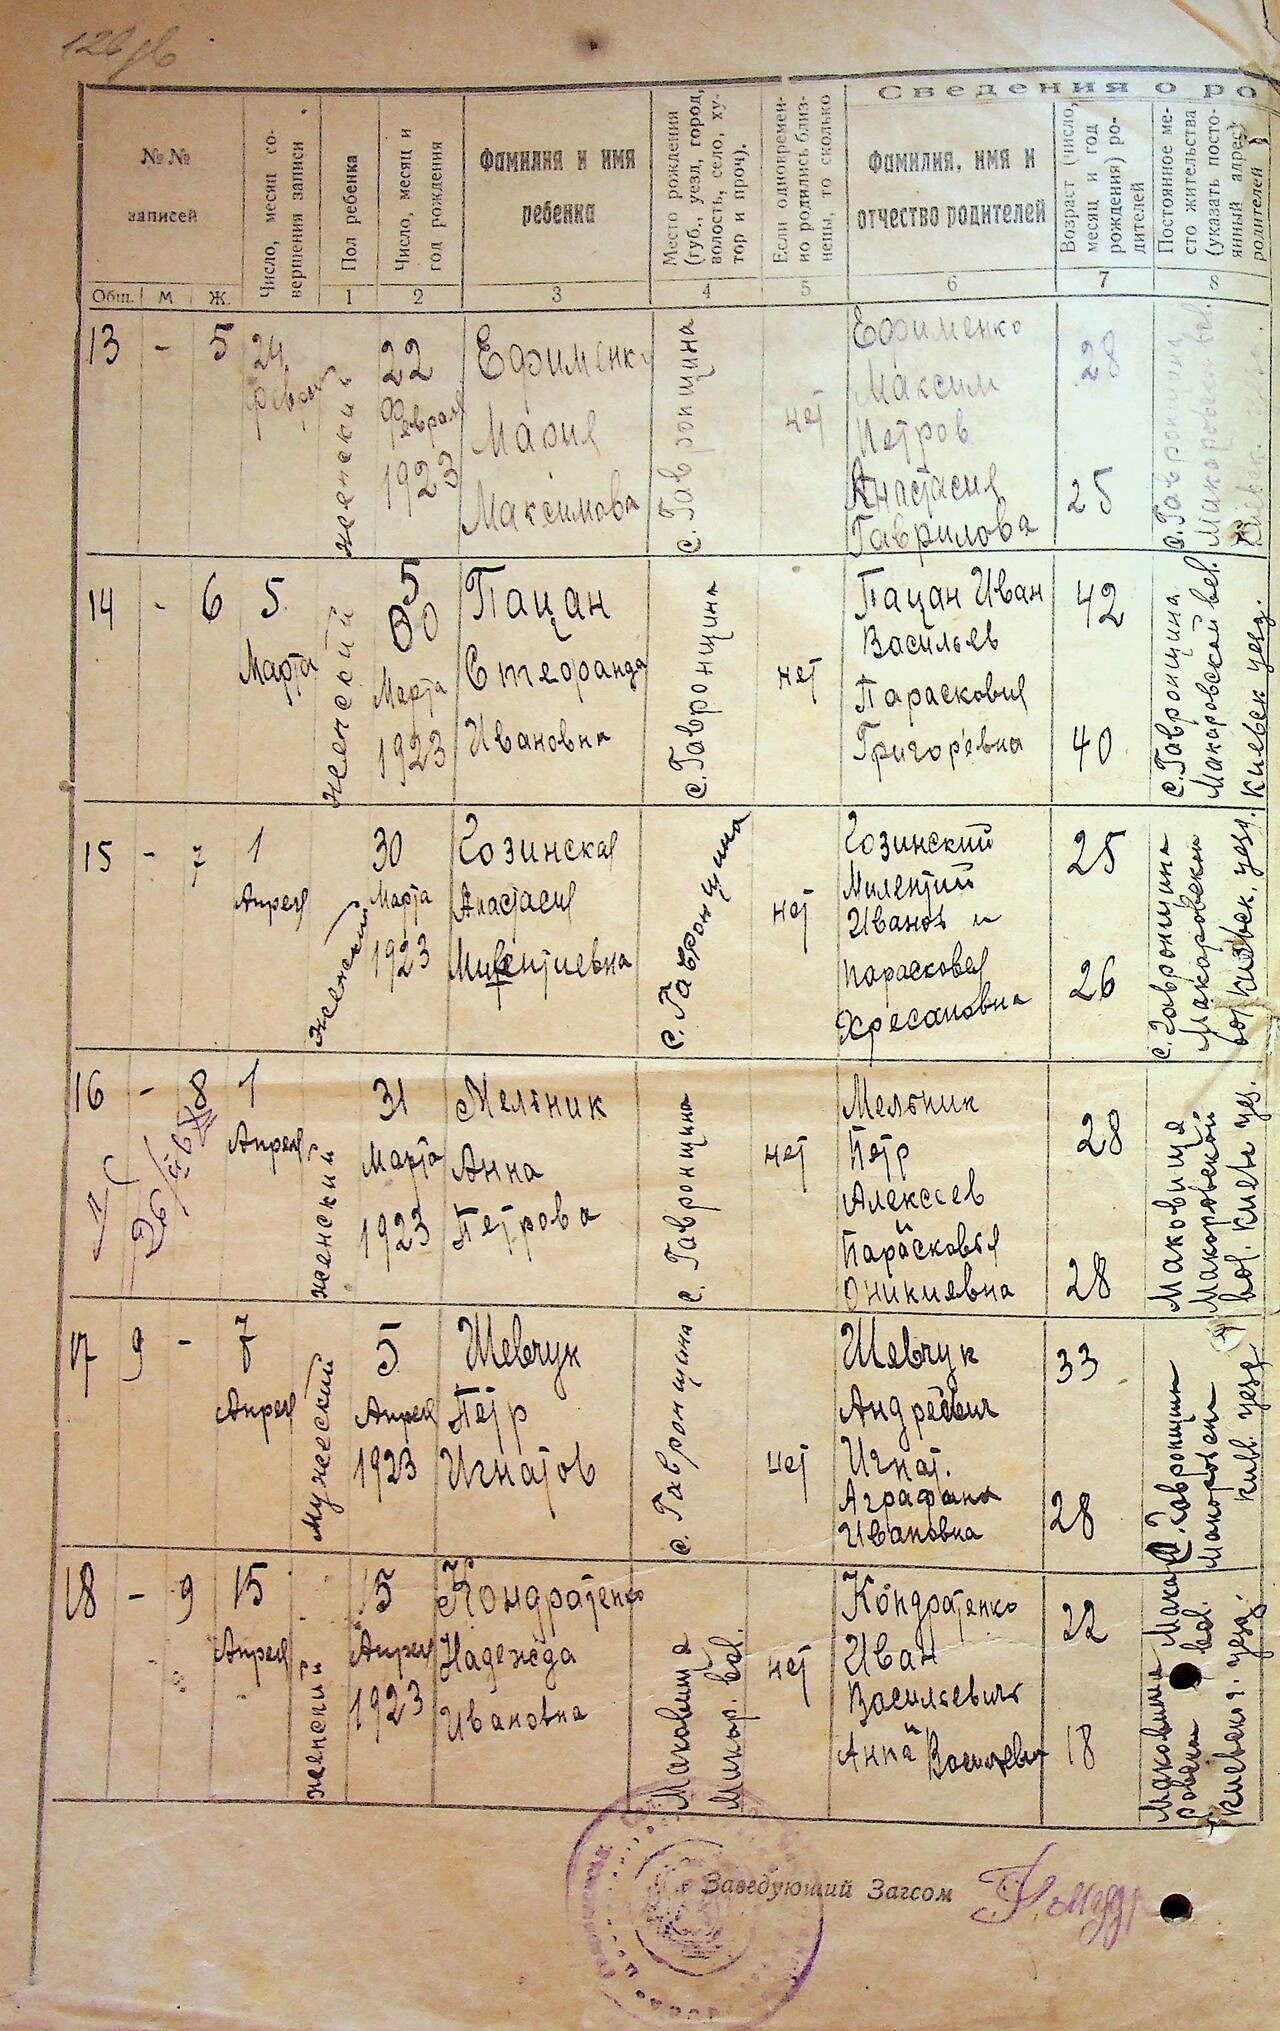 Сведения о ро
№№ записей
Общ. М Ж.
Число, месяц со-
вершения записи
Пол ребенка
1
Число, месяц и
год рождения
2
Фамилия и имя
ребенка
3
Место рождения
(губ., уезд, город,
волость, село, ху-
тор и проч).
4
Если одновремен-
но родились близ-
нецы, то сколько
5
Фамилия, имя и
отчество родителей
6
Возраст (число,
месяц и год
рождения) ро-
дителей
7
Постоянное ме-
сто жительства
(указать посто-
янный адрес)
родителей
8
13 - 5
24
женский
22
Февраля
1923
Ефименко
Мария
Максимова
с. Гавронщина
нет
Ефименко
Максим
Петров
Анастасия
Гаврилова
28
25
с. Гавронщина
Макаровской вол.
14 - 6
5
Марта
женский
5
Марта
1923
Пацан
Ивановна
с. Гавронщина
нет
Пацан Иван
Васильев
Парасковия
Григорьевна
42
40
с. Гавронщина
Макаровской вол.
Киевск уезд.
15 - 7
1
Апреля
женский
30
Марта
1923
Гозинская
Анастасия
с. Гавронщина
нет
Гозинский
Милентий
Иванов и
Парасковея
Хресановна
25
26
с. Гавронщина
Макаровской
вол Киевск. уезд.
16 - 8
1
Апреля
женский
31
Марта
1923
Мельник
Анна
Петрова
с. Гавронщина
нет
Мельник
Петр
Алексеев
Парасковья
Оникиевна
28
28
Маковище
Макоровской
вол. Киевск уез.
17 9 -
7
Апреля
Мужеский
5
Апреля
1923
Шевчук
Петр
Игнатов
с. Гавронщина
нет
Шевчук
Игнат.
Аграфена
Ивановна
33
28
с. Гавронщина
уезд
18 - 9
15
Апреля
женский
15
Апреля
1923
Кондратенко
Надежда
Ивановна
Маковище
Макар. вол.
нет
Кондратенко
Иван
Васильевич
Анна Васильевна
22
18
Маковище Мака
ровской вол.
Киевског. уезд.
Заведующий Загсом